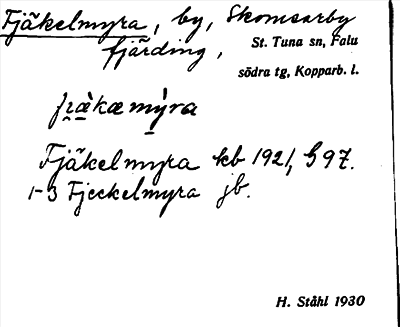 Fjäkelmyra, by, Skomsarby
fjärding, St. Tuna sn, Falu
södra tg, Kopparb. l.
Fjäkelmyra kb 1921, S 97.
1-3 Fjeckelmyra jb.
H. Ståhl 1930